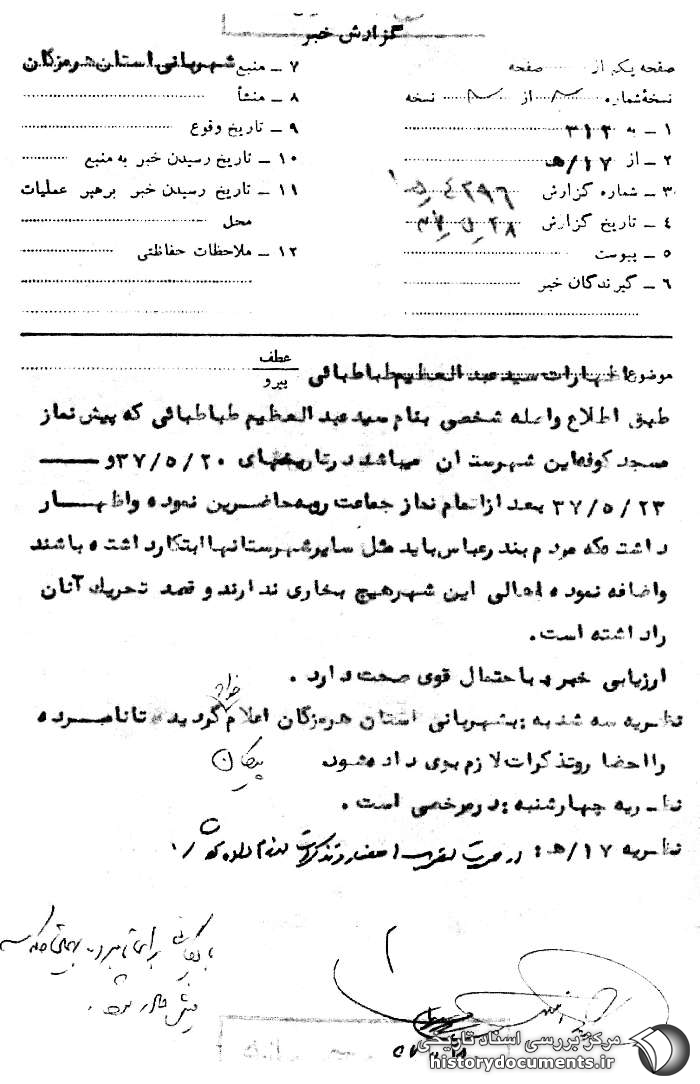 گزارش خبر
صفحه یکم از صفحه
نسخهٔ شماره از نسخه
۱ – به ۳۱۲
۲ – از ۱۷/ھ
۳ – شماره گزارش ۴۲۹۶
۴ – تاریخ گزارش ۲۸
۵ – پیوست
۶ – گیرندگان خبر
۷ – منبع شهربانی استان هرمزگان
۸ – منشأ
۹ – تاریخ وقوع
۱۰ – تاریخ رسیدن خبر به منبع
۱۱ – تاریخ رسیدن خبر برهبر عملیات
محل
۱۲ – ملاحظات حفاظتی
موضوع اظهارات سید عبدالعظیم طباطبائی
عطف
پیرو
طبق اطلاع واصله شخصی بنام سید عبدالعظیم طباطبائی که پیش نماز
مسجد کوفه این شهرستان میباشد در تاریخهای ۳۷/۵/۲۰ و
۳۷/۵/۲۳ بعد از اتمام نماز جماعت روبه حاضرین نموده و اظهار
داشته که مردم بندرعباس باید مثل سایر شهرستانها ابتکار داشته باشند
و اضافه نموده اهالی این شهر هیچ بخاری ندارند و قصد تحریک آنان
را داشته است.
ارزیابی خبر به احتمال قوی صحت دارد.
نظریه سه شنبه: بشهربانی استان هرمزگان اعلام گردیده تا نامبرده
را احضار و تذکرات لازم بوی داده شود.
نظریه چهارشنبه: در مرخصی است.
نظریه ۱۷/ھ: احضار و تذکرات لازم داده
مرکز بررسی اسناد تاریخی
historydocuments.ir